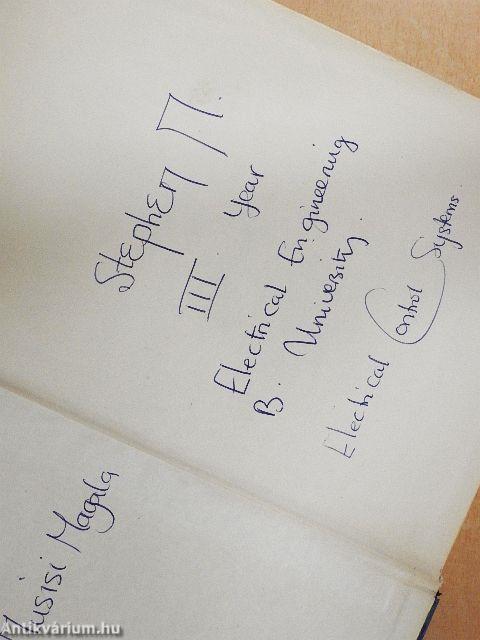 Stephen M.
III. Year
Electrical Engineering
B. University.
Electrical Control Systems.
Musisi Magala
Antikvárium.hu